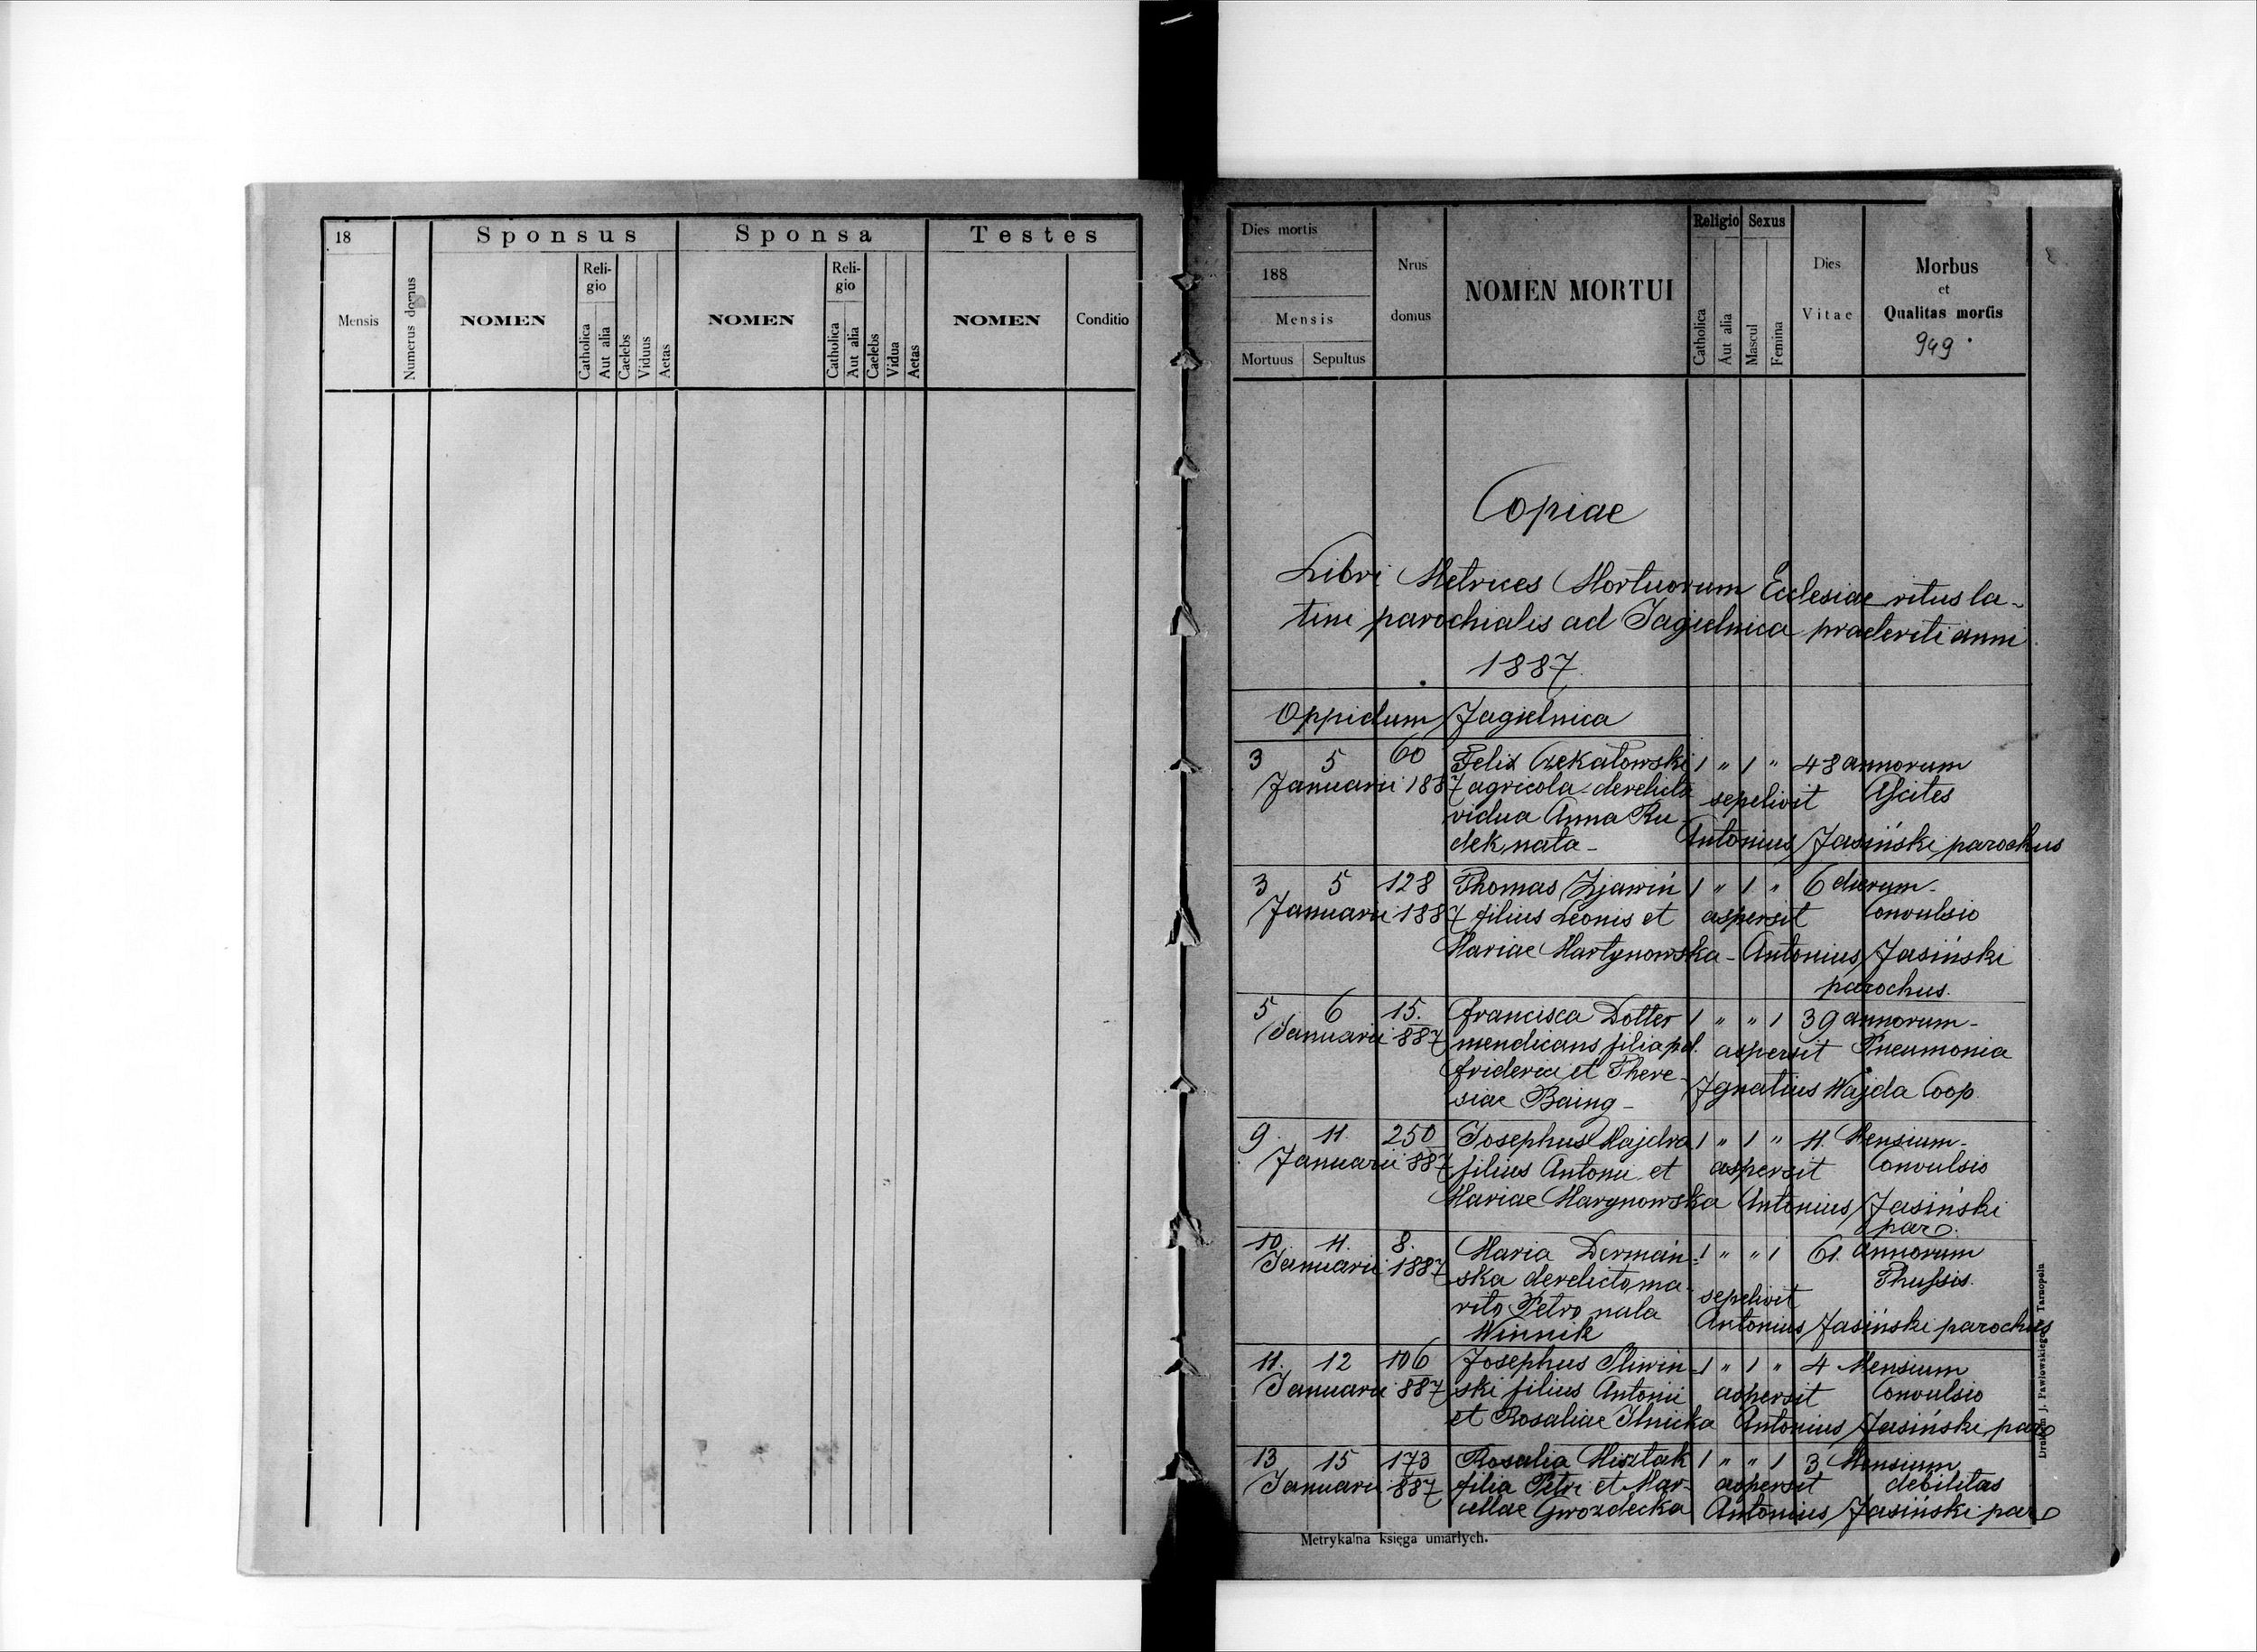 18
Mensis
Numerus domus
Sponsus
NOMEN
Reli-
gio
Catholica
Aut alia
Caelebs
Viduus
Aetas
Sponsa
NOMEN
Reli-
gio
Catholica
Aut alia
Caelebs
Vidua
Aetas
Testes
NOMEN
Conditio
Dies mortis
188
Mensis
Mortuus
Sepultus
Nrus
domus
NOMEN MORTUI
Religio
Catholica
Aut alia
Sexus
Mascul
Femina
Dies
Vitae
Morbus
et
Qualitas mortis
949
Copiae
Libri Metrices Mortuorum Ecclesiae ritus la-
tini parochialis ad Jagielnica praeteriti anni
1887
Oppidum Jagielnica
3 5 60 Felix Czekałowski 1 " 1 " 48 annorum
Januarii 1887 agricola derelicta sepelivit Ascites
vidua Anna Ru-
dek nata - Antonius Jasiński parochus
3 5 128 Thomas Zjawiń 1 " 1 " 6 dierum -
Januarii 1887 filius Leonis et aspersit Convulsio
Mariae Martynowska - Antonius Jasiński
parochus.
5 6 15. Francisca Dotter 1 " " 1 39 annorum -
Januarii 887 mendicans filia pd. aspersit Pneumonia
Friderici et There-
siae Baing - Ignatius Wajda Coop.
9. 11. 250 Josephus Hajdra 1 " 1 " 11. Mensium -
Januarii 887 filius Antonii et aspersit Convulsio
Mariae Marynowska Antonius Jasiński
par.
10. 11. 8. Maria Dermań- 1 " " 1 61. annorum
Januarii 1887 ska derelicto ma- Phussis.
rito Petro nata sepelivit
Winnik Antonius Jasiński parochus
11. 12 106 Josephus Śliwiń- 1 " 1 " 4 Mensium
Januarii 887 ski filius Antonii aspersit Convulsio
et Rosaliae Ilnicka Antonius Jasiński par
13 15 173 Rosalia Misztak 1 " " 1 3 Mensium
Januarii 887 filia Petri et Mar- aspersit debilitas
cellae Gwozdecka Antonius Jasiński par
Metrykalna księga umarłych.
J. Pawłowskiego Tarnopolu